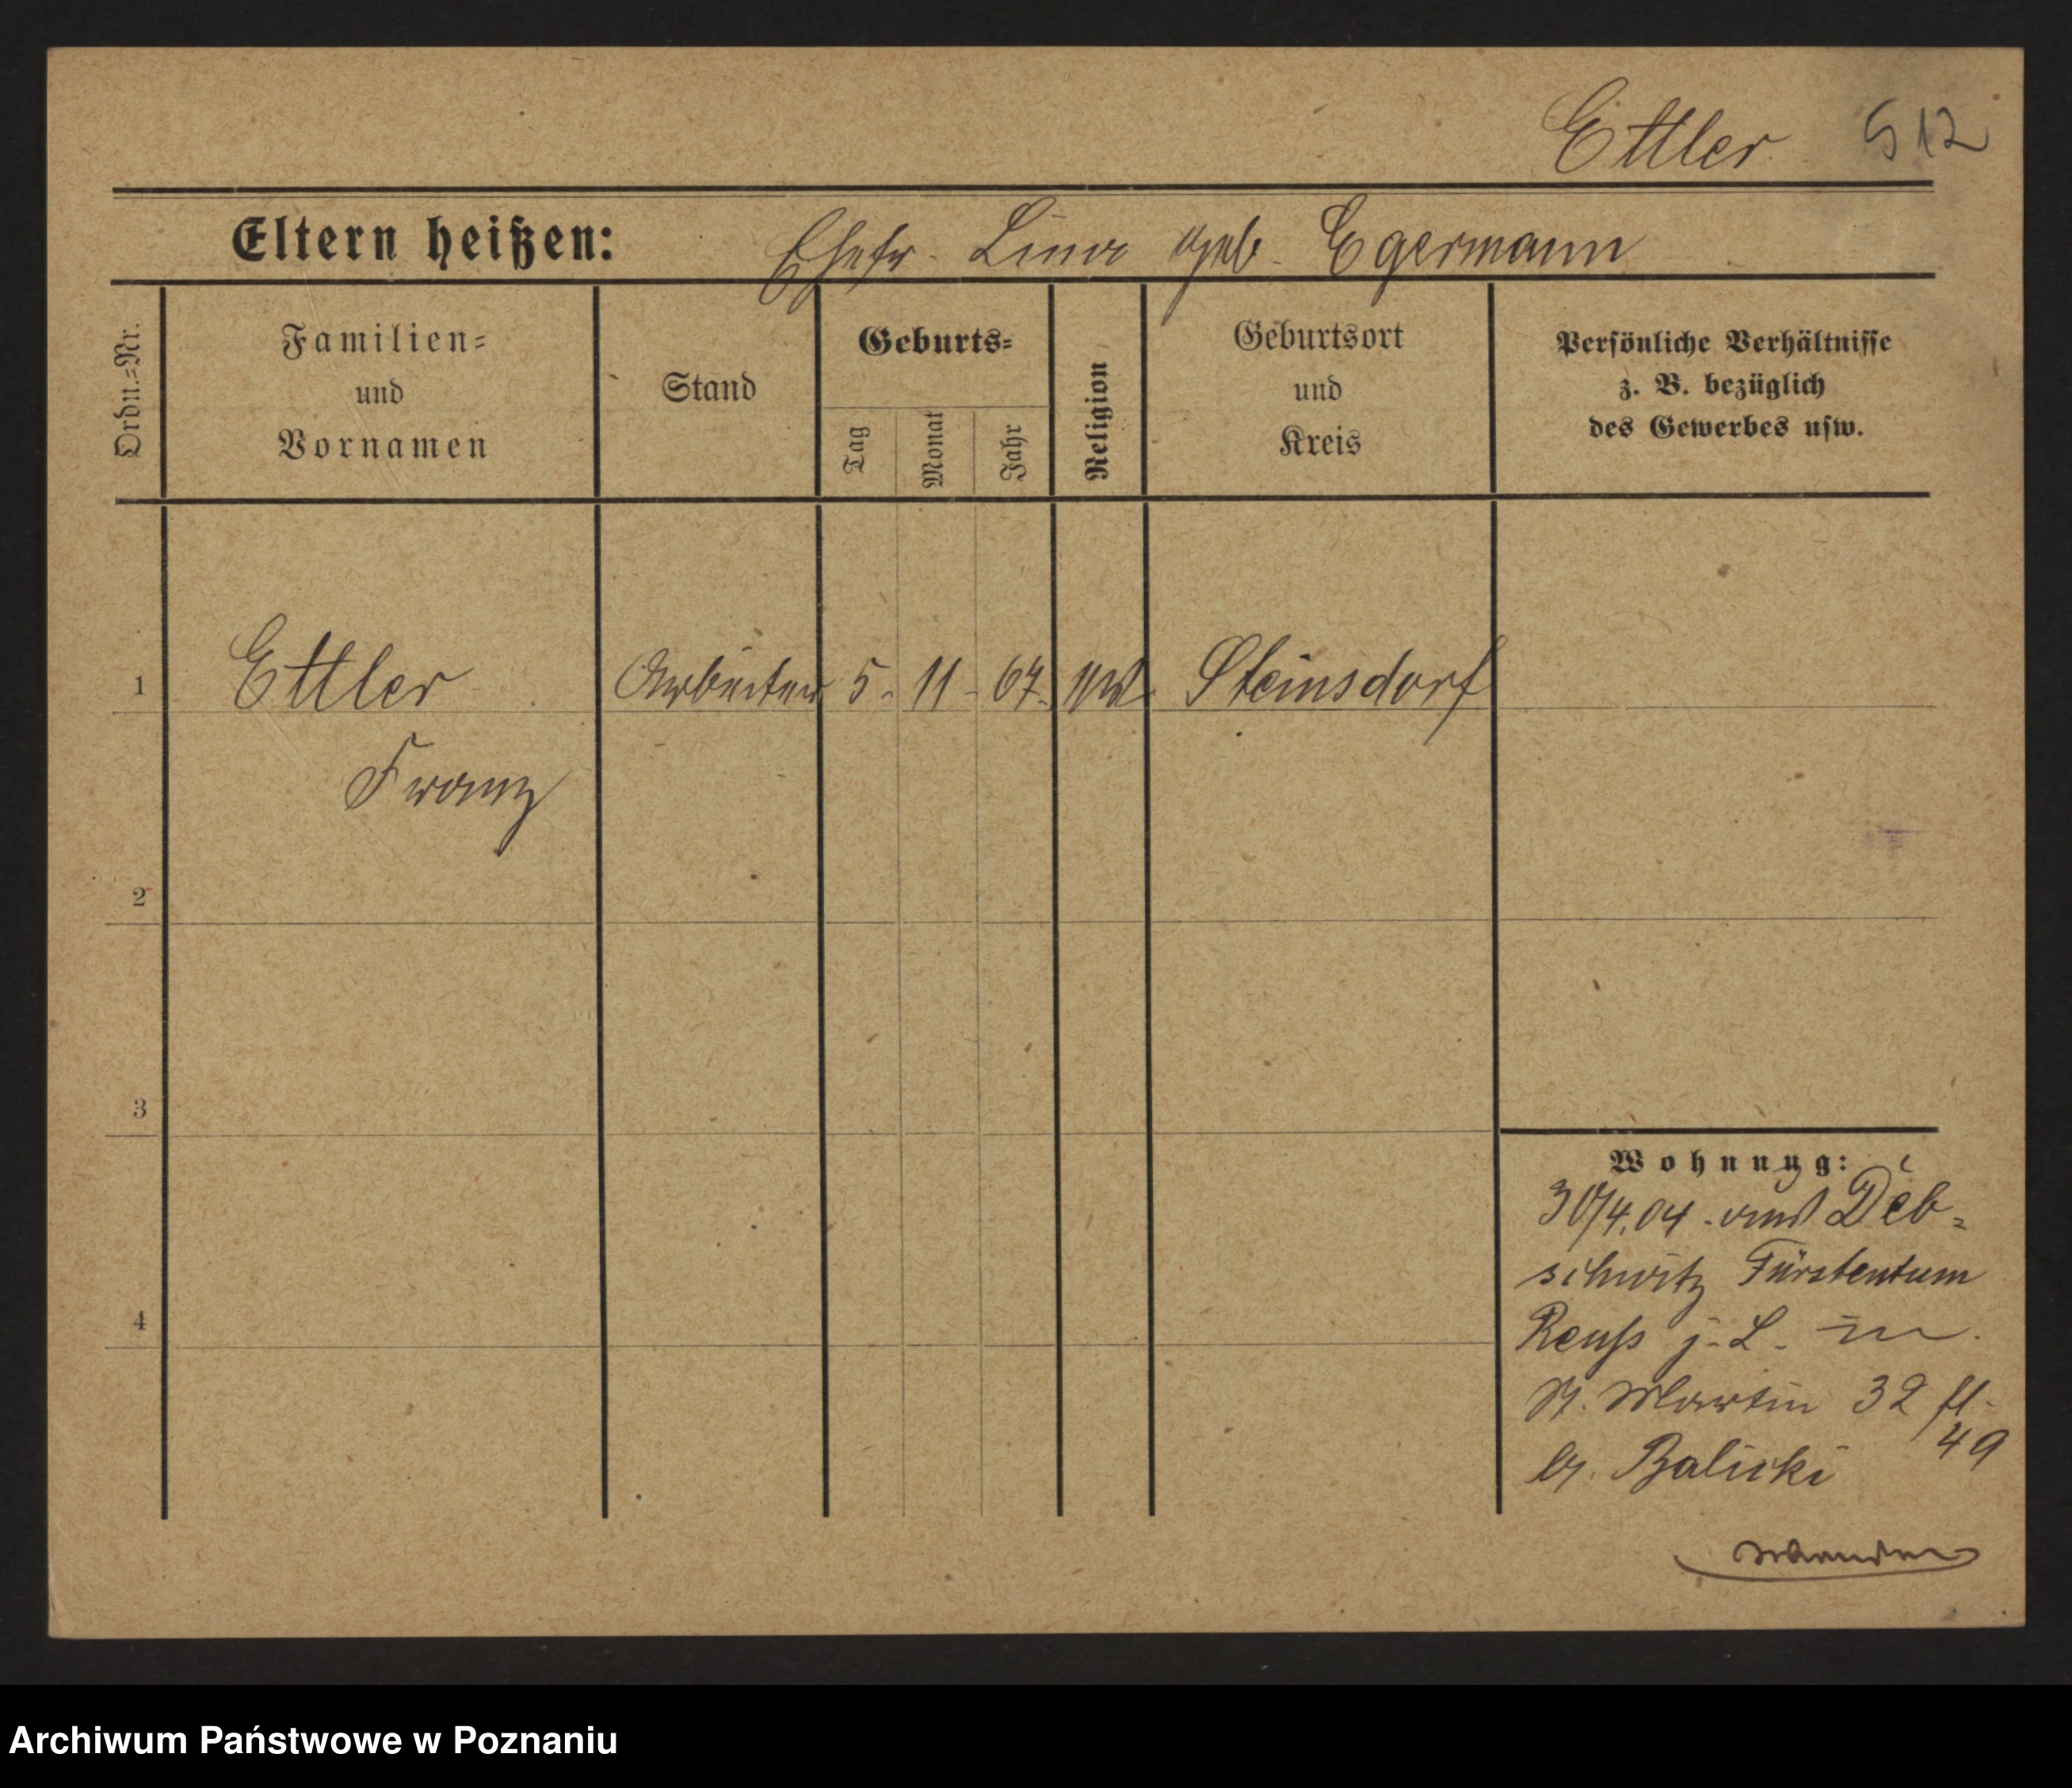 Ettler 512
Eltern heißen: Ehefr. Lina geb. Egermann
Ordn.=Nr.
Familien=
und
Vornamen
Stand
Geburts=
Tag
Monat
Jahr
Religion
Geburtsort
und
Kreis
Persönliche Verhältnisse
z. B. bezüglich
des Gewerbes usw.
1 Ettler Arbeiter 5. 11 67. Steinsdorf
Franz
2
3
4
Wohnung:
30/4.04. aus Deb=
schwitz Fürstentum
Reuss j. L.
St. Martin 32
b. Balicki 49
Archiwum Państwowe w Poznaniu